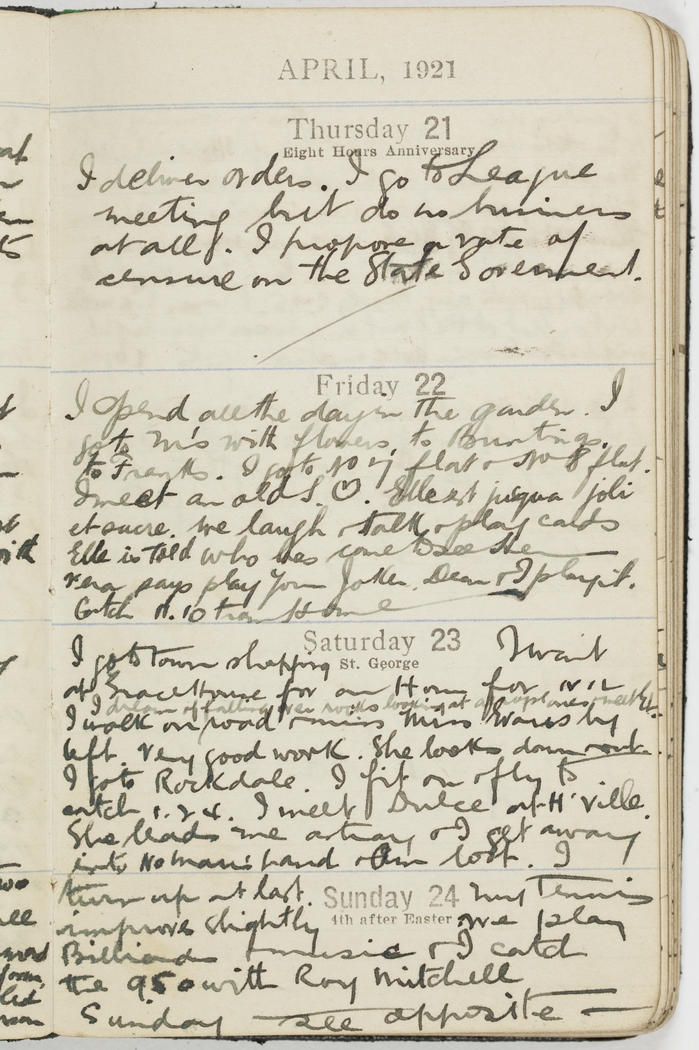 APRIL, 1921
Thursday 21
Eight Hours Anniversary
I deliver orders. I go to League
meeting but do no business
at all. I propose a vote of
censure on the State Government.
Friday 22
I spend all the day in the garden. I
go to M's with flowers, to Buntings.
to Franks. I go to No 7 flat & No 8 flat.
I meet an old S. Elle est jusqua joli
et sucre. we laugh & talk & play cards
Elle is told who was come to see her
Vera says play your Joker. Dean & I play it.
Catch 11.10 tram Home
Saturday 23
St. George
I go to town shopping I wait
at Grace House for an Hour for
I dream of falling over rocks looking at aeroplanes
I walk on road & miss Miss Evans by
left. Very good work. She looks down
I go to Rockdale. I fit on & fly to
catch 1.24. I meet Dulce at H'ville.
She leads me astray & I get away
into No Mans Land & am lost. I
turn up at last. my Tennis
Sunday 24
4th after Easter
improves slightly we play
Billiards & music & I catch
the 9.50 with Roy Mitchell
Sunday see opposite